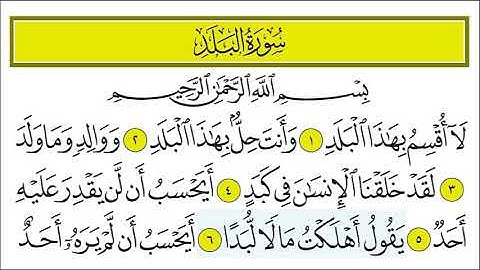 سُورَةُ الْبَلَدِ
بِسْمِ ٱللَّهِ ٱلرَّحْمَٰنِ ٱلرَّحِيمِ
لَآ أُقْسِمُ بِهَٰذَا ٱلْبَلَدِ ١ وَأَنتَ حِلٌّۢ بِهَٰذَا ٱلْبَلَدِ ٢ وَوَالِدٍ وَمَا وَلَدَ
٣ لَقَدْ خَلَقْنَا ٱلْإِنسَٰنَ فِي كَبَدٍ ٤ أَيَحْسَبُ أَن لَّن يَقْدِرَ عَلَيْهِ
أَحَدٌ ٥ يَقُولُ أَهْلَكْتُ مَالًا لُّبَدًا ٦ أَيَحْسَبُ أَن لَّمْ يَرَهُۥٓ أَحَدٌ